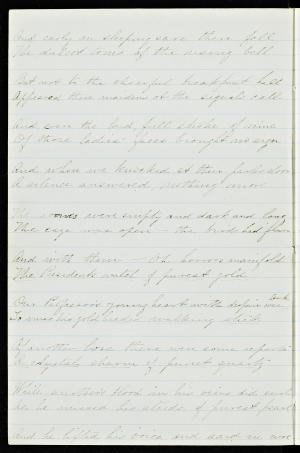 And early on sleeping ears there fell
The dulcet tones of the rising bell

But not to the cheerful breakfast hall
Appeared these maidens at the signal's call

And even the loud, full stroke of nine
Of those ladies' faces brought no sign

And when we knocked at their parlor door
A silence answered, nothing more

The rooms were empty and dark and long
The cage was open - the bird had flown

And with them - Oh horrors manifold
The President's watch of purest gold

Our Professor's young heart with despair was
To miss his gold headed walking stick

Of another loss there were some reports
A crystal charm of purest quartz

While another's blood in his veins did
As he missed his studs of purest pearl

And he lifted his voice and said in